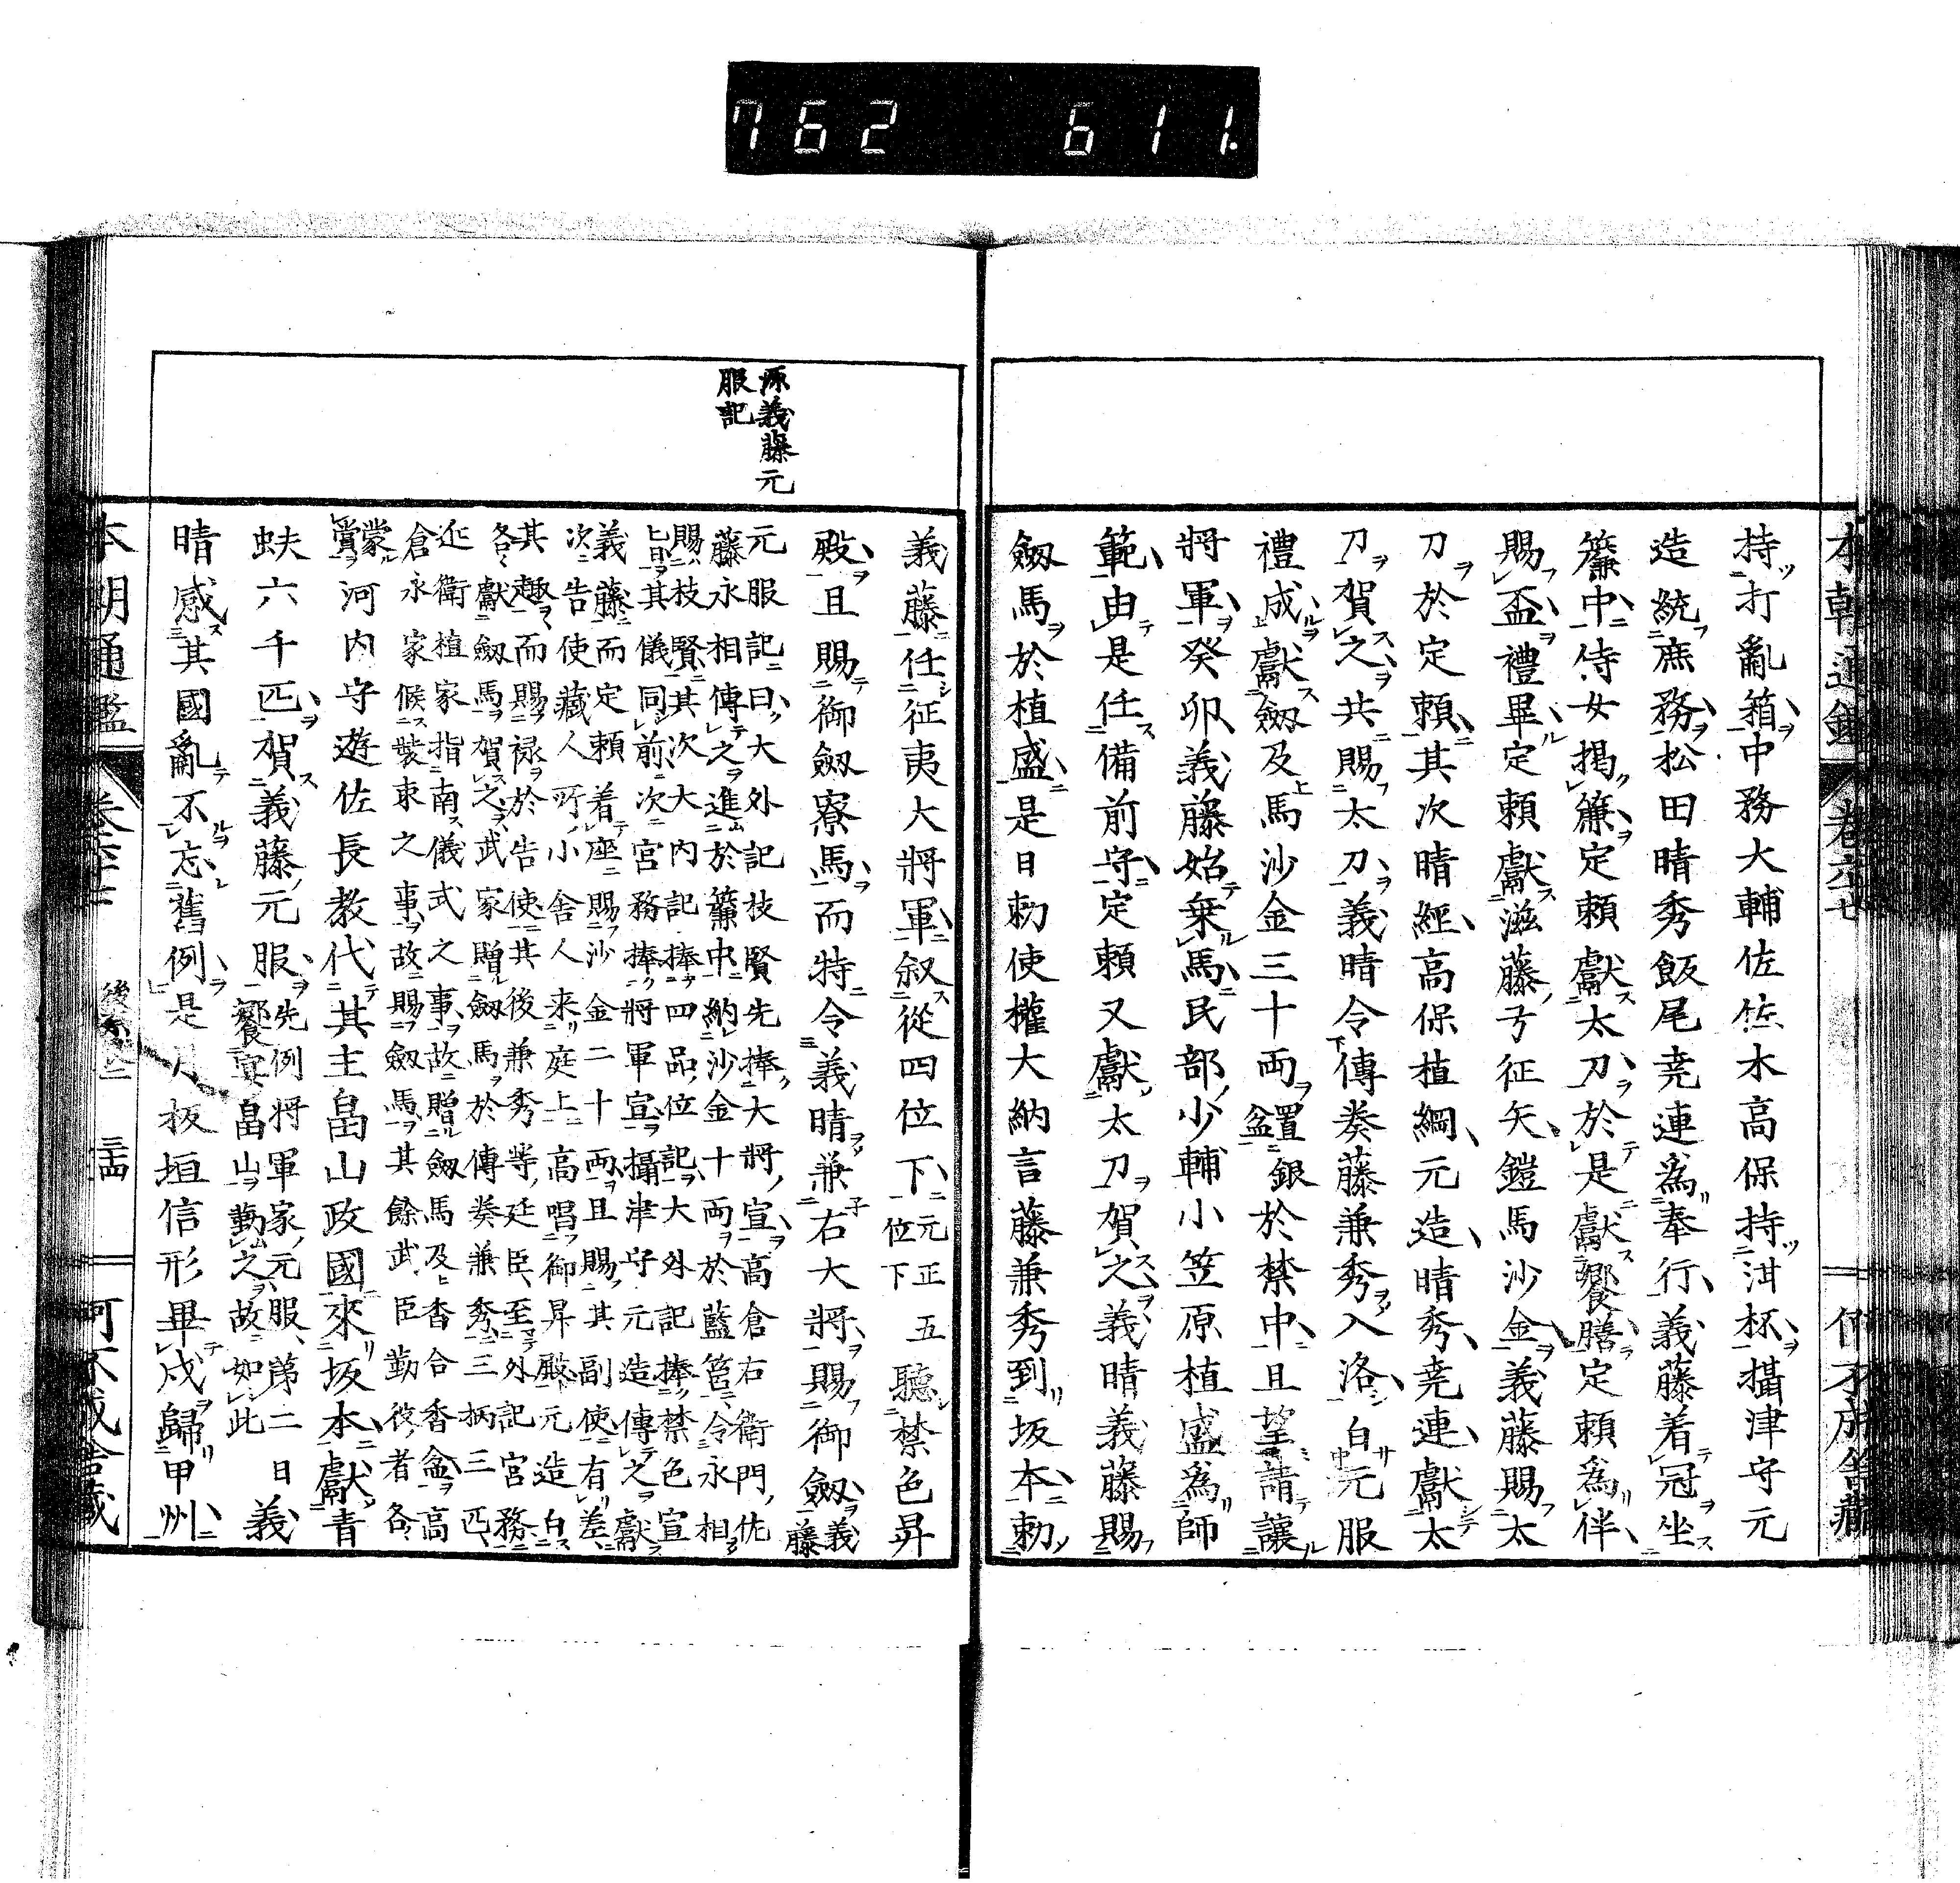 762 611.
本朝通鑑 卷六十七
持打亂箱中務大輔佐佐木高保持泔杯攝津守元
造統庶務松田晴秀飯尾尭連爲奉行義藤着冠坐
簾中侍女揭簾定賴獻太刀於是獻饗膳定賴爲伴
賜盃禮畢定賴獻滋藤弓征矢鎧馬沙金義藤賜太
刀於定賴其次晴經高保植綱元造晴秀尭連獻太
刀賀之共賜太刀義晴令傳奏藤兼秀入洛白元服
禮成獻劔及馬沙金三十兩置銀盆於禁中且望請讓
將軍癸卯義藤始乗馬民部少輔小笠原植盛爲師
範由是任備前守定賴又獻太刀賀之義晴義藤賜
劔馬於植盛是日勅使權大納言藤兼秀到坂本勅
源義藤元
服記
義藤任征夷大將軍叙從四位下元正五位下聽禁色昇
殿且賜御劔寮馬而特令義晴兼右大將賜御劔義藤
元服記曰大外記枝賢先捧大將宣高倉右衛門佐
藤永相傳之進於簾中納沙金十兩於藍筥令永相
賜枝賢其次大内記捧四品位記大外記捧禁色宣
旨其儀同前次宮務捧將軍宣攝津守元造傳之獻
義藤而定賴着座賜沙金二十兩且賜其副使有差
次告使藏人所小舎人来庭上高唱御昇殿元造白
其趣而賜禄於告使其後兼秀等延臣至外記宮務
各獻劔馬賀之武家贈劔馬於傳奏兼秀三柄三匹
近衛植家指南儀式之事故贈劔馬及沓合香盆高
倉永家候裝束之事故賜劔馬其餘武臣勤役者各
蒙賞河内守遊佐長教代其主畠山政國來坂本獻青
蚨六千匹賀義藤元服先例將軍家元服第二日義饗宴畠山勤之故如此
晴感其國亂不忘舊例是月板垣信形畢戍歸甲州
本朝通鑑
三十四